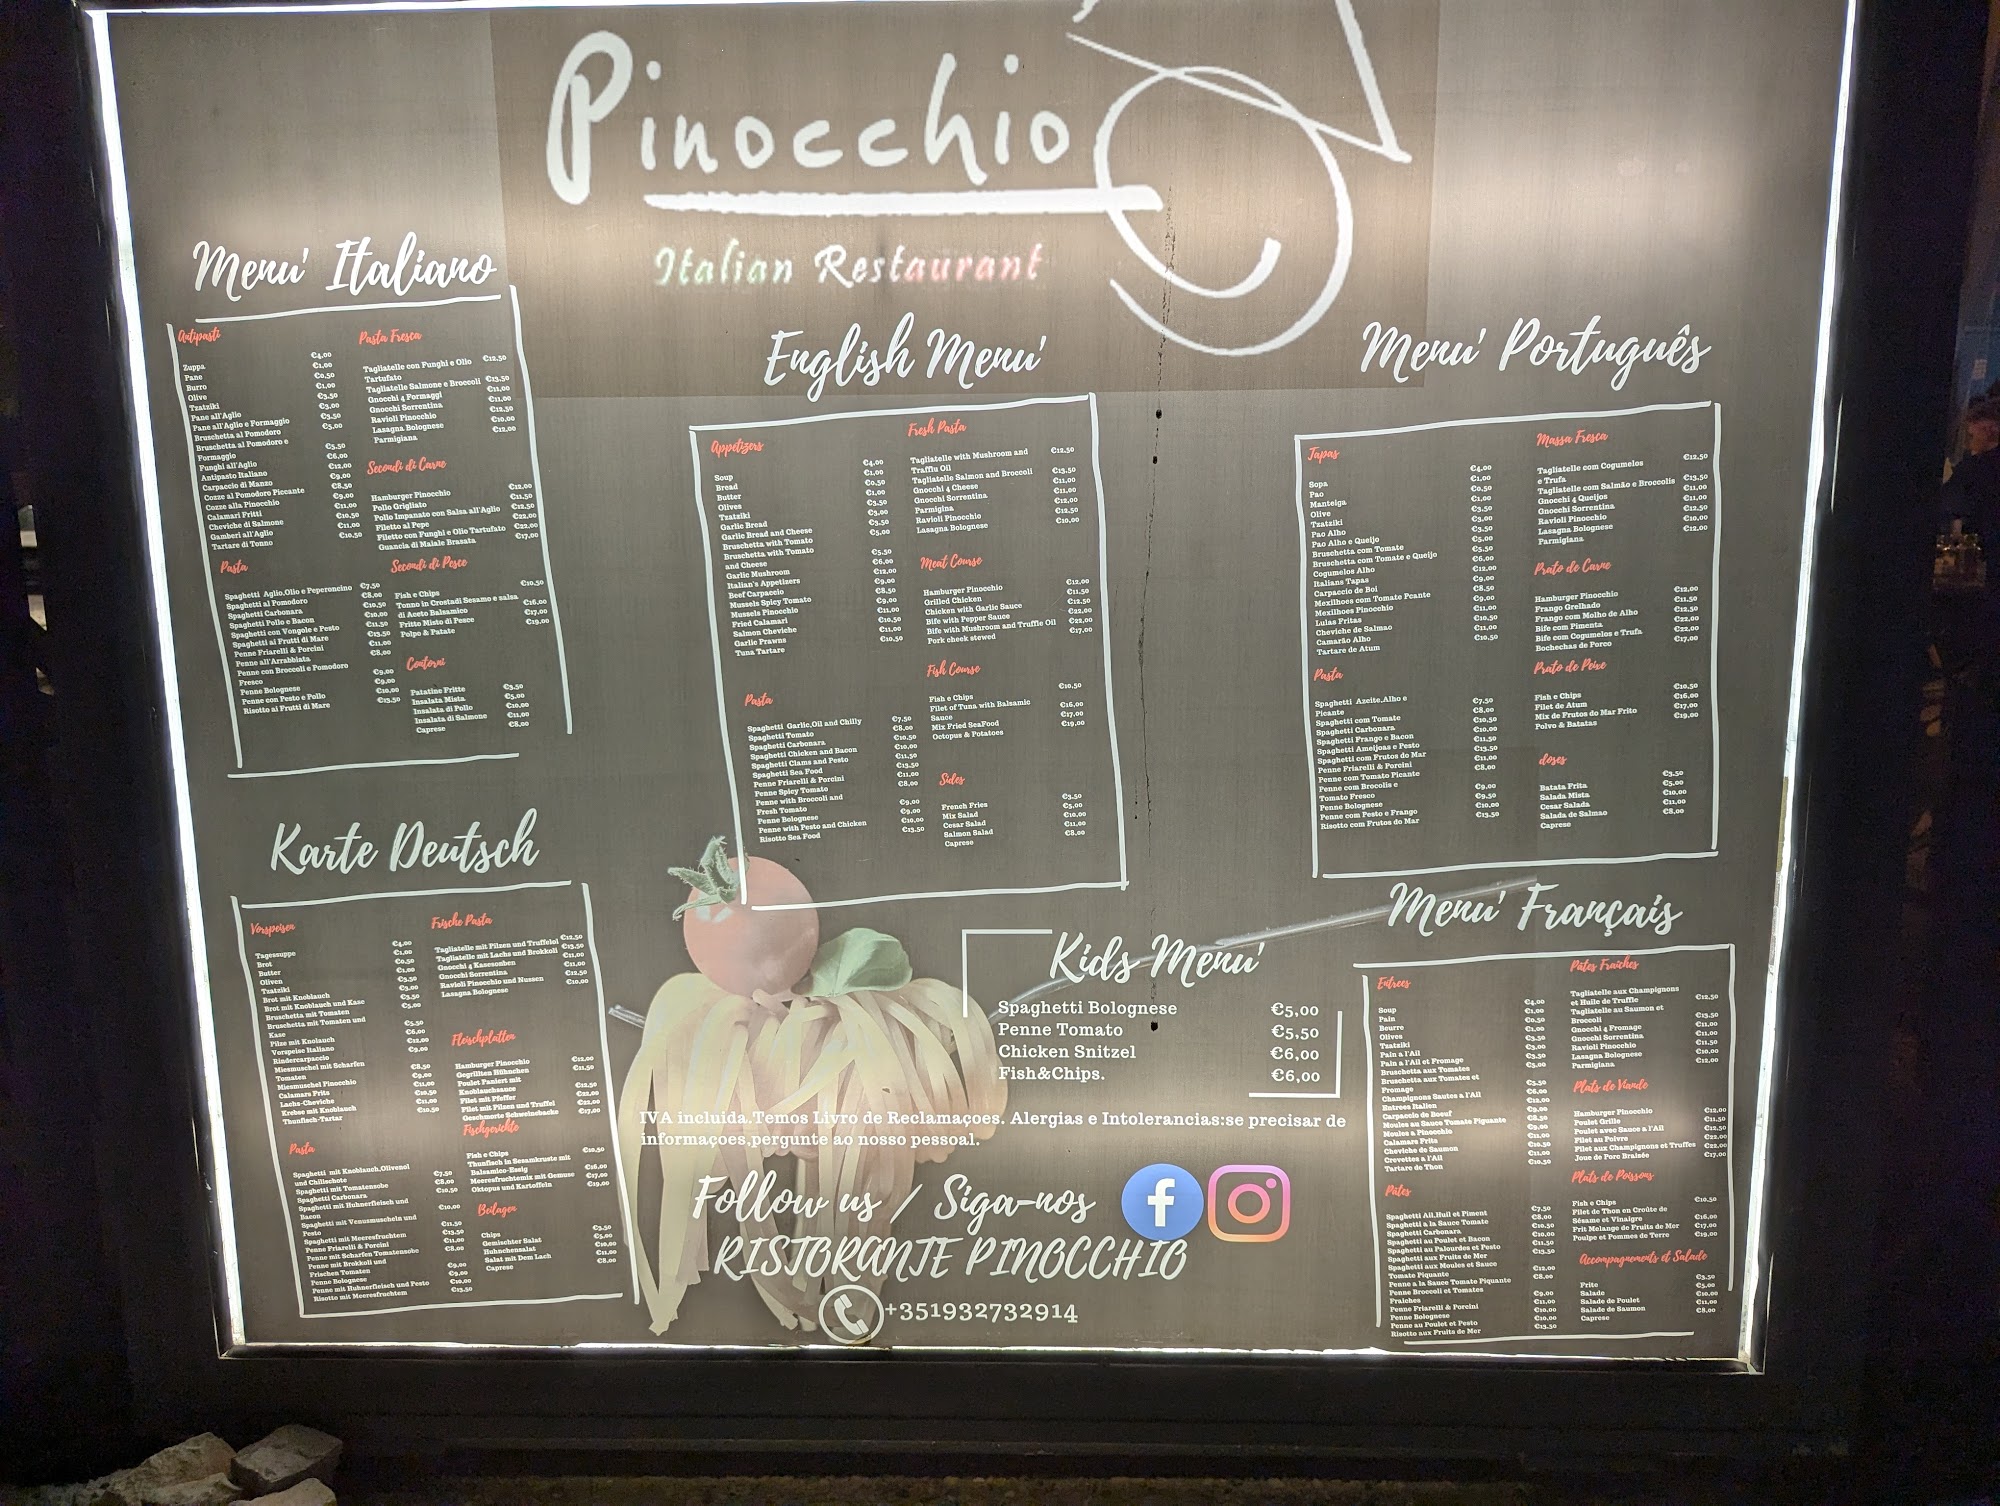 Pinocchio
Italian Restaurant
Menu' Italiano
Antipasti
Zuppa €4,00
Pane €1,00
Burro €0,50
Olive €1,00
Tzatziki €3,50
Pane all'Aglio €3,00
Pane all'Aglio e Formaggio €3,50
Bruschetta al Pomodoro €5,00
Bruschetta al Pomodoro e
Formaggio €5,50
Funghi all'Aglio €6,00
Antipasto Italiano €12,00
Carpaccio di Manzo €9,00
Cozze al Pomodoro Piccante €8,50
Cozze alla Pinocchio €9,00
Calamari Fritti €11,00
Cheviche di Salmone €10,50
Gamberi all'Aglio €11,00
Tartare di Tonno €10,50
Pasta
Spaghetti Aglio,Olio e Peperoncino €7,50
Spaghetti al Pomodoro €8,00
Spaghetti Carbonara €10,50
Spaghetti Pollo e Bacon €10,00
Spaghetti con Vongole e Pesto €11,50
Spaghetti ai Frutti di Mare €13,50
Penne Friarelli & Porcini €11,00
Penne all'Arrabbiata €8,00
Penne con Broccoli e Pomodoro
Fresco €9,00
Penne Bolognese €9,00
Penne con Pesto e Pollo €10,00
Risotto ai Frutti di Mare €13,50
Pasta Fresca
Tagliatelle con Funghi e Olio €12,50
Tartufato
Tagliatelle Salmone e Broccoli €13,50
Gnocchi 4 Formaggi €11,00
Gnocchi Sorrentina €11,00
Ravioli Pinocchio €12,50
Lasagna Bolognese €10,00
Parmigiana €12,00
Secondi di Carne
Hamburger Pinocchio €12,00
Pollo Grigliato €11,50
Pollo Impanato con Salsa all'Aglio €12,50
Filetto al Pepe €22,00
Filetto con Funghi e Olio Tartufato €22,00
Guancia di Maiale Brasata €17,00
Secondi di Pesce
Fish e Chips €10,50
Tonno in Crostadi Sesamo e salsa
di Aceto Balsamico €16,00
Fritto Misto di Pesce €17,00
Polpo & Patate €19,00
Contorni
Patatine Fritte €3,50
Insalata Mista €5,00
Insalata di Pollo €10,00
Insalata di Salmone €11,00
Caprese €8,00
English Menu'
Appetizers
Soup €4,00
Bread €1,00
Butter €0,50
Olives €1,00
Tzatziki €3,50
Garlic Bread €3,00
Garlic Bread and Cheese €3,50
Bruschetta with Tomato €5,00
Bruschetta with Tomato
and Cheese €5,50
Garlic Mushroom €6,00
Italian's Appetizers €12,00
Beef Carpaccio €9,00
Mussels Spicy Tomato €8,50
Mussels Pinocchio €9,00
Fried Calamari €11,00
Salmon Cheviche €10,50
Garlic Prawns €11,00
Tuna Tartare €10,50
Pasta
Spaghetti Garlic,Oil and Chilly €7,50
Spaghetti Tomato €8,00
Spaghetti Carbonara €10,50
Spaghetti Chicken and Bacon €10,00
Spaghetti Clams and Pesto €11,50
Spaghetti Sea Food €13,50
Penne Friarelli & Porcini €11,00
Penne Spicy Tomato €8,00
Penne with Broccoli and
Fresh Tomato €9,00
Penne Bolognese €9,00
Penne with Pesto and Chicken €10,00
Risotto Sea Food €13,50
Fresh Pasta
Tagliatelle with Mushroom and €12,50
Trafflu Oil
Tagliatelle Salmon and Broccoli €13,50
Gnocchi 4 Cheese €11,00
Gnocchi Sorrentina €11,00
Parmigina €12,00
Ravioli Pinocchio €12,50
Lasagna Bolognese €10,00
Meat Course
Hamburger Pinocchio €12,00
Grilled Chicken €11,50
Chicken with Garlic Sauce €12,50
Bife with Pepper Sauce €22,00
Bife with Mushroom and Truffle Oil €22,00
Pork cheek stewed €17,00
Fish Course
Fish e Chips €10,50
Filet of Tuna with Balsamic
Sauce €16,00
Mix Fried SeaFood €17,00
Octopus & Potatoes €19,00
Sides
French Fries €3,50
Mix Salad €5,00
Cesar Salad €10,00
Salmon Salad €11,00
Caprese €8,00
Menu' Português
Tapas
Sopa €4,00
Pao €1,00
Manteiga €0,50
Olive €1,00
Tzatziki €3,50
Pao Alho €3,00
Pao Alho e Queijo €3,50
Bruschetta com Tomate €5,00
Bruschetta com Tomate e Queijo €5,50
Cogumelos Alho €6,00
Italians Tapas €12,00
Carpaccio de Boi €9,00
Mexilhoes com Tomate Pcante €8,50
Mexilhoes Pinocchio €9,00
Lulas Fritas €11,00
Cheviche de Salmao €10,50
Camarão Alho €11,00
Tartare de Atum €10,50
Pasta
Spaghetti Azeite,Alho e
Picante €7,50
Spaghetti com Tomate €8,00
Spaghetti Carbonara €10,50
Spaghetti Frango e Bacon €10,00
Spaghetti Ameijoas e Pesto €11,50
Spaghetti com Frutos do Mar €13,50
Penne Friarelli & Porcini €11,00
Penne com Tomato Picante €8,00
Penne com Brocolis e
Tomato Fresco €9,00
Penne Bolognese €9,50
Penne com Pesto e Frango €10,00
Risotto com Frutos do Mar €13,50
Massa Fresca
Tagliatelle com Cogumelos €12,50
e Trufa
Tagliatelle com Salmão e Broccolis €13,50
Gnocchi 4 Queijos €11,00
Gnocchi Sorrentina €11,00
Ravioli Pinocchio €12,50
Lasagna Bolognese €10,00
Parmigiana €12,00
Prato de Carne
Hamburger Pinocchio €12,00
Frango Grelhado €11,50
Frango com Molho de Alho €12,50
Bife com Pimenta €22,00
Bife com Cogumelos e Trufa €22,00
Bochechas de Porco €17,00
Prato de Peixe
Fish e Chips €10,50
Filet de Atum €16,00
Mix de Frutos do Mar Frito €17,00
Polvo & Batatas €19,00
doses
Batata Frita €3,50
Salada Mista €5,00
Cesar Salada €10,00
Salada de Salmao €11,00
Caprese €8,00
Karte Deutsch
Vorspeisen
Tagessuppe €4,00
Brot €1,00
Butter €0,50
Oliven €1,00
Tzatziki €3,50
Brot mit Knoblauch €3,00
Brot mit Knoblauch und Kase €3,50
Bruschetta mit Tomaten €5,00
Bruschetta mit Tomaten und
Kase €5,50
Pilze mit Knolauch €6,00
Vorspeise Italiano €12,00
Rindercarpaccio €9,00
Miesmuschel mit Scharfen
Tomaten €8,50
Miesmuschel Pinocchio €9,00
Calamars Frits €11,00
Lachs-Cheviche €10,50
Krebse mit Knoblauch €11,00
Thunfisch-Tartar €10,50
Pasta
Spaghetti mit Knoblauch,Olivenol
und Chilischote €7,50
Spaghetti mit Tomatensobe €8,00
Spaghetti Carbonara €10,50
Spaghetti mit Huhnerfleisch und
Bacon €10,00
Spaghetti mit Venusmuscheln und
Pesto €11,50
Spaghetti mit Meeresfruchtem €13,50
Penne Friarelli & Porcini €11,00
Penne mit Scharfen Tomatensobe €8,00
Penne mit Brokkoli und
Frischen Tomaten €9,00
Penne Bolognese €9,00
Penne mit Huhnerfleisch und Pesto €10,00
Risotto mit Meeresfruchtem €13,50
Frische Pasta
Tagliatelle mit Pilzen und Truffelol €12,50
Tagliatelle mit Lachs und Brokkoli €13,50
Gnocchi 4 Kasesonben €11,00
Gnocchi Sorrentina €11,00
Ravioli Pinocchio und Nussen €12,50
Lasagna Bolognese €10,00
Fleischplatten
Hamburger Pinocchio €12,00
Gegrillten Hühnchen €11,50
Poulet Paniert mit
Knoblauchsauce €12,50
Filet mit Pfeffer €22,00
Filet mit Pilzen und Truffel €22,00
Geschmorte Schweinebacke €17,00
Fischgerichte
Fish e Chips €10,50
Thunfisch in Sesamkruste mit
Balsamico-Essig €16,00
Meeresfruchtemix mit Gemuse €17,00
Oktopus und Kartoffeln €19,00
Beilagen
Chips €3,50
Gemischter Salat €5,00
Huhnchensalat €10,00
Salat mit Dem Lach €11,00
Caprese €8,00
Kids Menu'
Spaghetti Bolognese €5,00
Penne Tomato €5,50
Chicken Snitzel €6,00
Fish&Chips. €6,00
IVA incluida.Temos Livro de Reclamaçoes. Alergias e Intolerancias:se precisar de
informaçoes,pergunte ao nosso pessoal.
Follow us / Siga-nos
RISTORANTE PINOCCHIO
+351932732914
Menu' Français
Entrees
Soup €4,00
Pain €1,00
Beurre €0,50
Olives €1,00
Tzatziki €3,50
Pain a l'Ail €3,00
Pain a l'Ail et Fromage €3,50
Bruschetta aux Tomates €5,00
Bruschetta aux Tomates et
Fromage €5,50
Champignons Sautes a l'Ail €6,00
Entrees Italien €12,00
Carpaccio de Boeuf €9,00
Moules au Sauce Tomate Piquante €8,50
Moules a Pinocchio €9,00
Calamars Frits €11,00
Cheviche de Saumon €10,50
Crevettes a l'Ail €11,00
Tartare de Thon €10,50
Pâtes
Spaghetti Ail,Huil et Piment €7,50
Spaghetti a la Sauce Tomate €8,00
Spaghetti Carbonara €10,50
Spaghetti au Poulet et Bacon €10,00
Spaghetti au Palourdes et Pesto €11,50
Spaghetti aux Fruits de Mer €13,50
Spaghetti aux Moules et Sauce
Tomate Piquante €12,00
Penne a la Sauce Tomate Piquante €8,00
Penne Broccoli et Tomates
Fraiches €9,00
Penne Friarelli & Porcini €11,00
Penne Bolognese €10,00
Penne au Poulet et Pesto €10,00
Risotto aux Fruits de Mer €13,50
Pâtes Fraîches
Tagliatelle aux Champignons
et Huile de Truffle €12,50
Tagliatelle au Saumon et
Broccoli €13,50
Gnocchi 4 Fromage €11,00
Gnocchi Sorrentina €11,00
Ravioli Pinocchio €11,50
Lasagna Bolognese €10,00
Parmigiana €12,00
Plats de Viande
Hamburger Pinocchio €12,00
Poulet Grille €11,50
Poulet avec Sauce a l'Ail €12,50
Filet au Poivre €22,00
Filet aux Champignons et Truffes €22,00
Joue de Porc Braisée €17,00
Plats de Poissons
Fish e Chips €10,50
Filet de Thon en Croûte de
Sésame et Vinaigre €16,00
Frit Melange de Fruits de Mer €17,00
Poulpe et Pommes de Terre €19,00
Accompagnements et Salade
Frite €3,50
Salade €5,00
Salade de Poulet €10,00
Salade de Saumon €11,00
Caprese €8,00